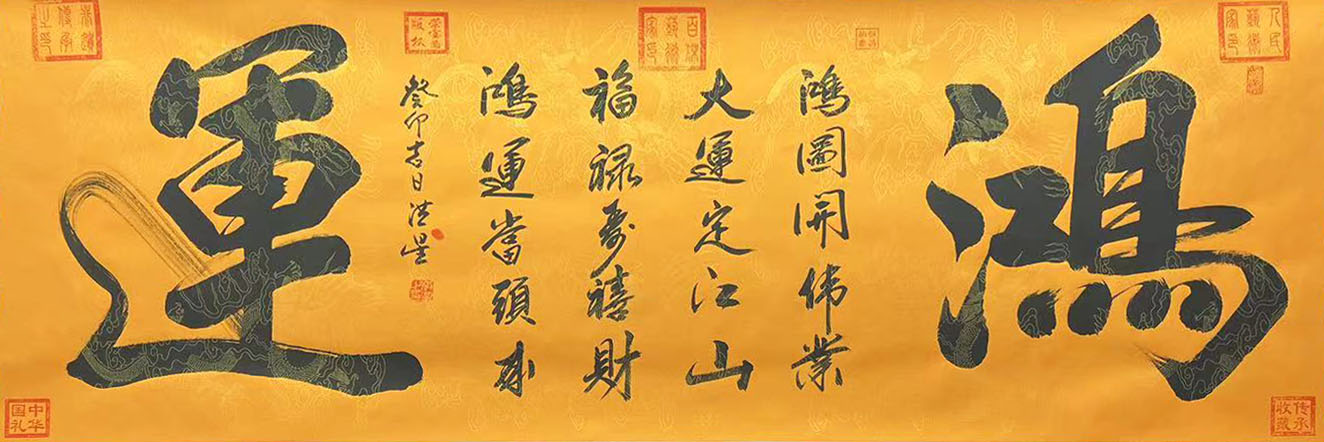 鴻
鴻圖開偉業
大運定江山
福禄壽禧財
鴻運當頭來
癸卯吉日洪星
運
人民藝術家印
传承收藏
中华国礼